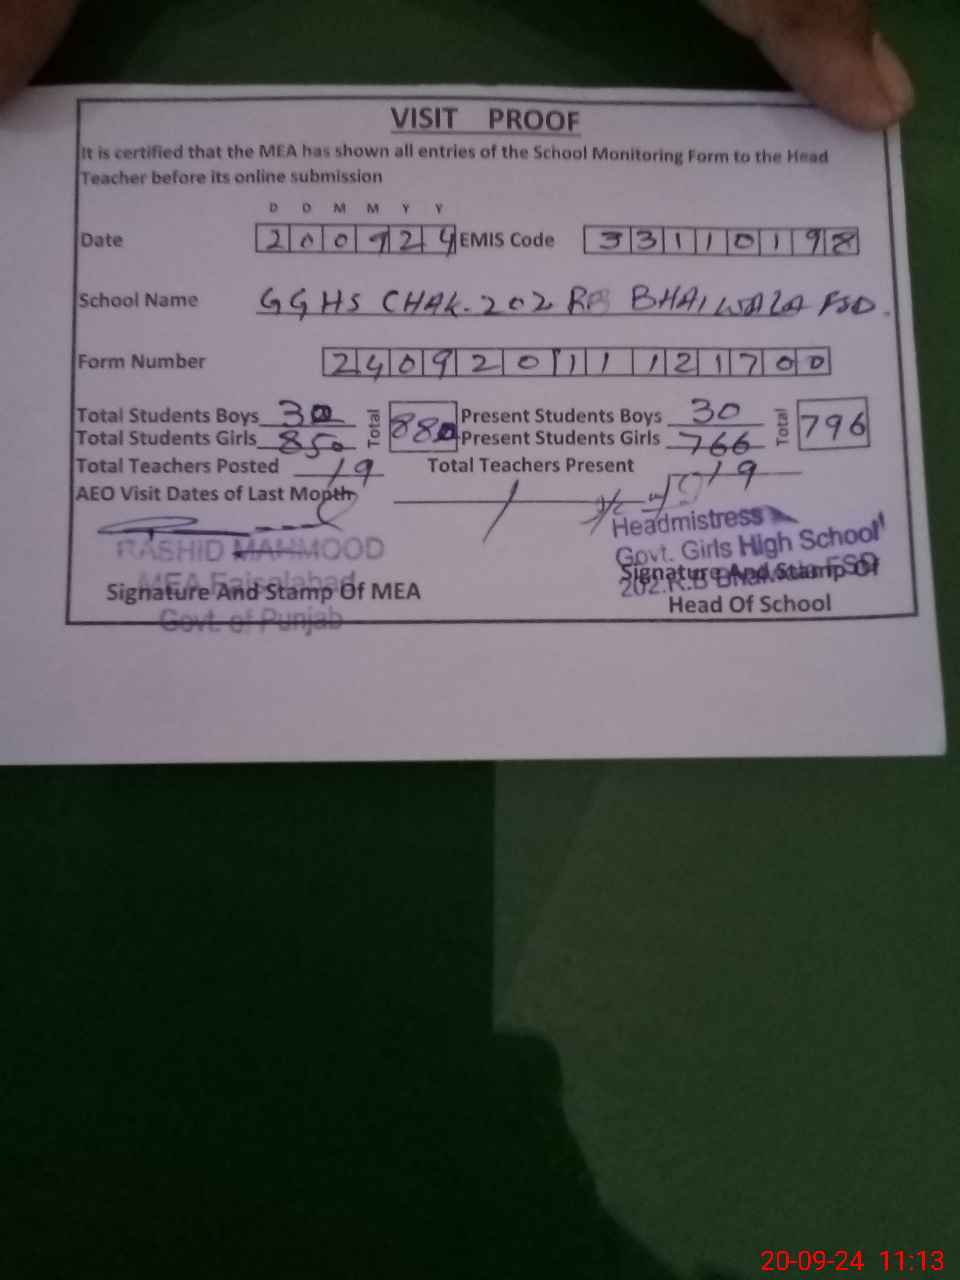 VISIT PROOF
It is certified that the MEA has shown all entries of the School Monitoring Form to the Head
Teacher before its online submission
D D M M Y Y
Date 200924 EMIS Code 33110198
School Name GGHS CHAK. 202 RB BHAIWALA FSD.
Form Number 240920111121700
Total Students Boys 30 Total 880 Present Students Boys 30 Total 796
Total Students Girls 850 Present Students Girls 766
Total Teachers Posted 19 Total Teachers Present 19
AEO Visit Dates of Last Month
RASHID MAHMOOD
MEA Faisalabad
Govt. of Punjab
Signature And Stamp Of MEA
Headmistress
Govt. Girls High School
202.R.B Bhaiwala FSD
Signature And Stamp Of
Head Of School
20-09-24 11:13